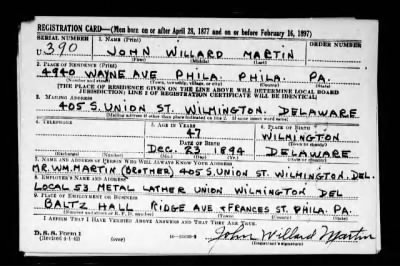 REGISTRATION CARD—(Men born on or after April 28, 1877 and on or before February 16, 1897)
SERIAL NUMBER 1. NAME (Print) ORDER NUMBER
U 390 JOHN WILLARD MARTIN
(First) (Middle) (Last)
2. PLACE OF RESIDENCE (Print)
4940 WAYNE AVE PHILA. PHILA. PA.
(Number and street) (Town, township, village, or city) (County) (State)
[THE PLACE OF RESIDENCE GIVEN ON THE LINE ABOVE WILL DETERMINE LOCAL BOARD
JURISDICTION; LINE 2 OF REGISTRATION CERTIFICATE WILL BE IDENTICAL]
3. MAILING ADDRESS
405 S. UNION ST. WILMINGTON. DELAWARE
[Mailing address if other than place indicated on line 2. If same insert word same]
4. TELEPHONE 5. AGE IN YEARS 6. PLACE OF BIRTH
47 WILMINGTON
DATE OF BIRTH (Town or county)
DEC. 23 1894 DELAWARE
(Exchange) (Number) (Mo.) (Day) (Yr.) (State or country)
7. NAME AND ADDRESS OF PERSON WHO WILL ALWAYS KNOW YOUR ADDRESS
MR. WM. MARTIN (BROTHER) 405 S. UNION ST. WILMINGTON. DEL.
8. EMPLOYER'S NAME AND ADDRESS
LOCAL 53 METAL LATHER UNION WILMINGTON DEL
9. PLACE OF EMPLOYMENT OR BUSINESS
BALTZ HALL RIDGE AVE + FRANCES ST. PHILA. PA.
(Number and street or R. F. D. number) (Town) (County) (State)
I AFFIRM THAT I HAVE VERIFIED ABOVE ANSWERS AND THAT THEY ARE TRUE.
D. S. S. Form 1
(Revised 4-1-42)
John Willard Martin
(Registrant's signature)